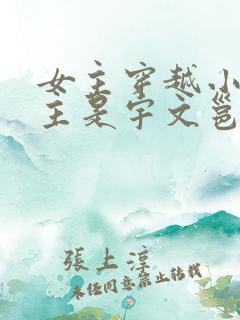 女主穿越小
主是宇文邕
張上淳
未经同意禁止转载